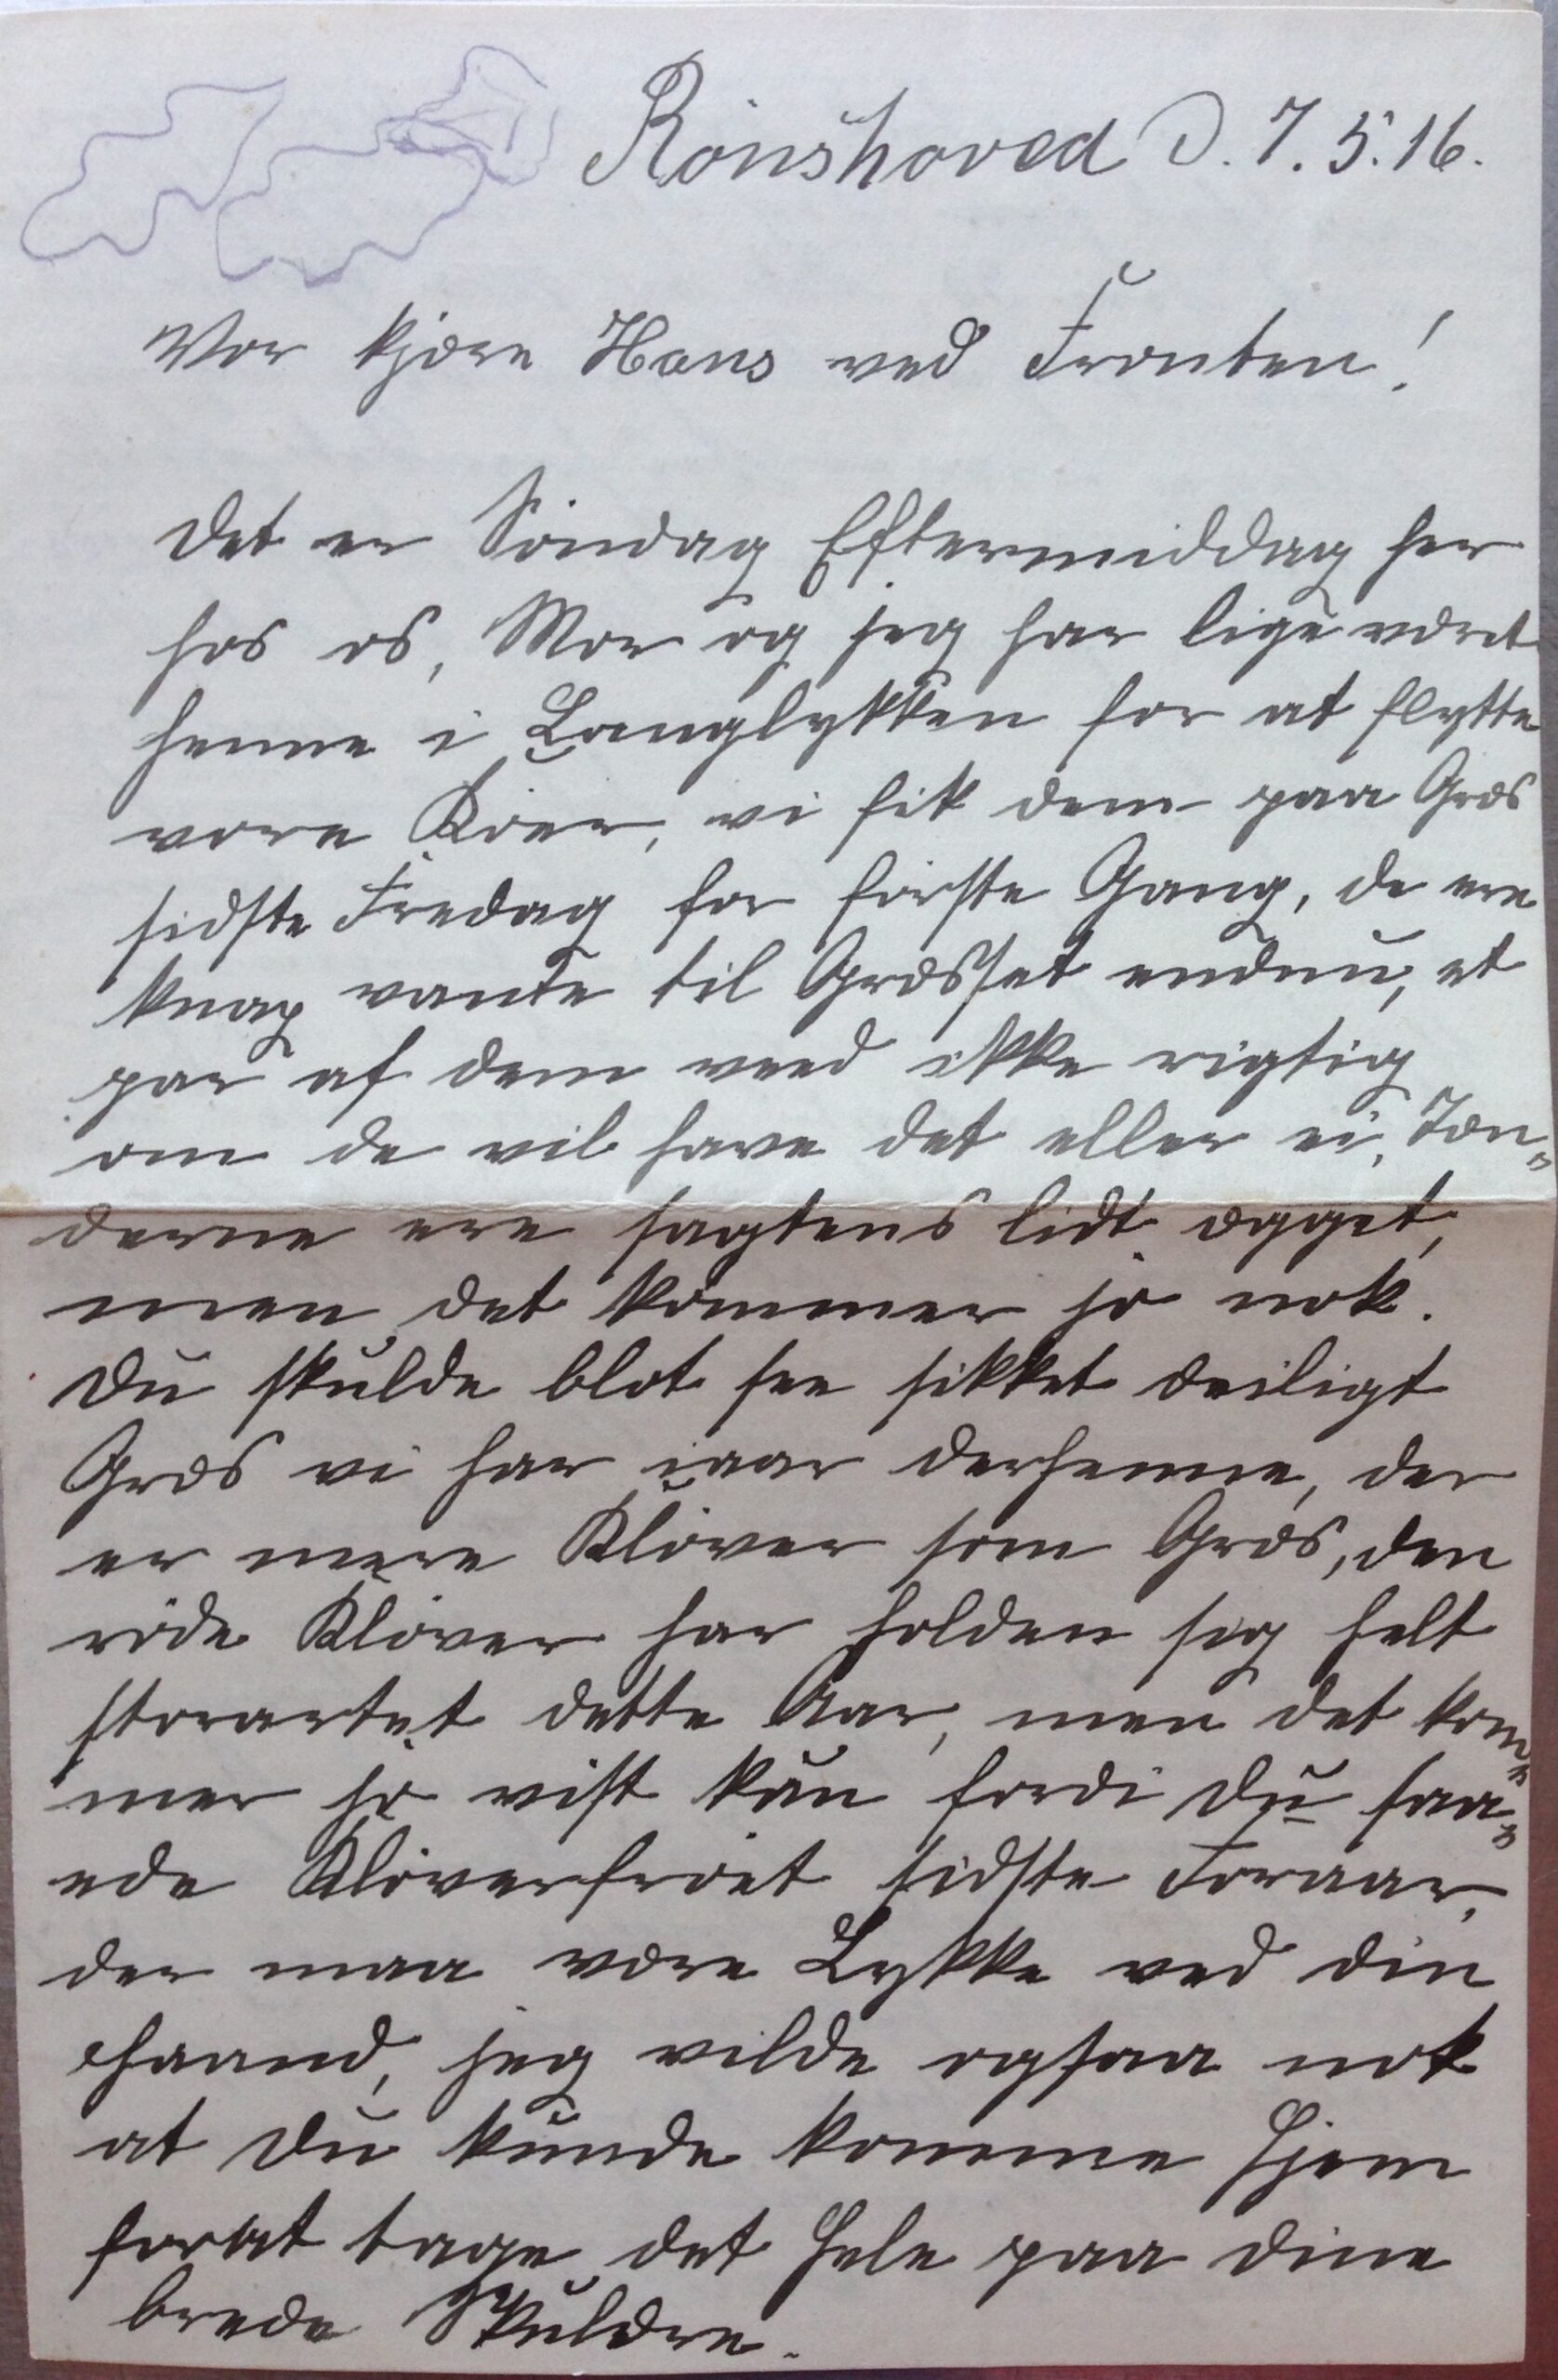 Rönshoved D. 7.5.16.
Vor kjære Hans ved Fronten!
Det er Söndag Eftermiddag her
hos os, Mor og jeg har lige været
henne i Langlykken for at flytte
vore Köer, vi fik dem paa Græs
sidste Fredag for förste Gang, de ere
knap vante til Græsset endnu, et
par af dem veed ikke rigtig
om de vil have det eller ei, Tæn=
derne ere sagtens lidt ögget,
men det kommer jo nok.
Du skulde blot see sikket deiligt
Græs vi har iaar derhenne, der
er mere Klöver som Græs, den
röde Klöver har holden sig helt
storartet dette Aar, men det kom=
mer jo vist kun fordi Du saa=
ede Klöverfröet sidste Foraar,
der maa være Lykke ved din
Haand, jeg vilde ogsaa nok
at Du kunde komme Hjem
forat tage det Hele paa dine
brede Skuldre.